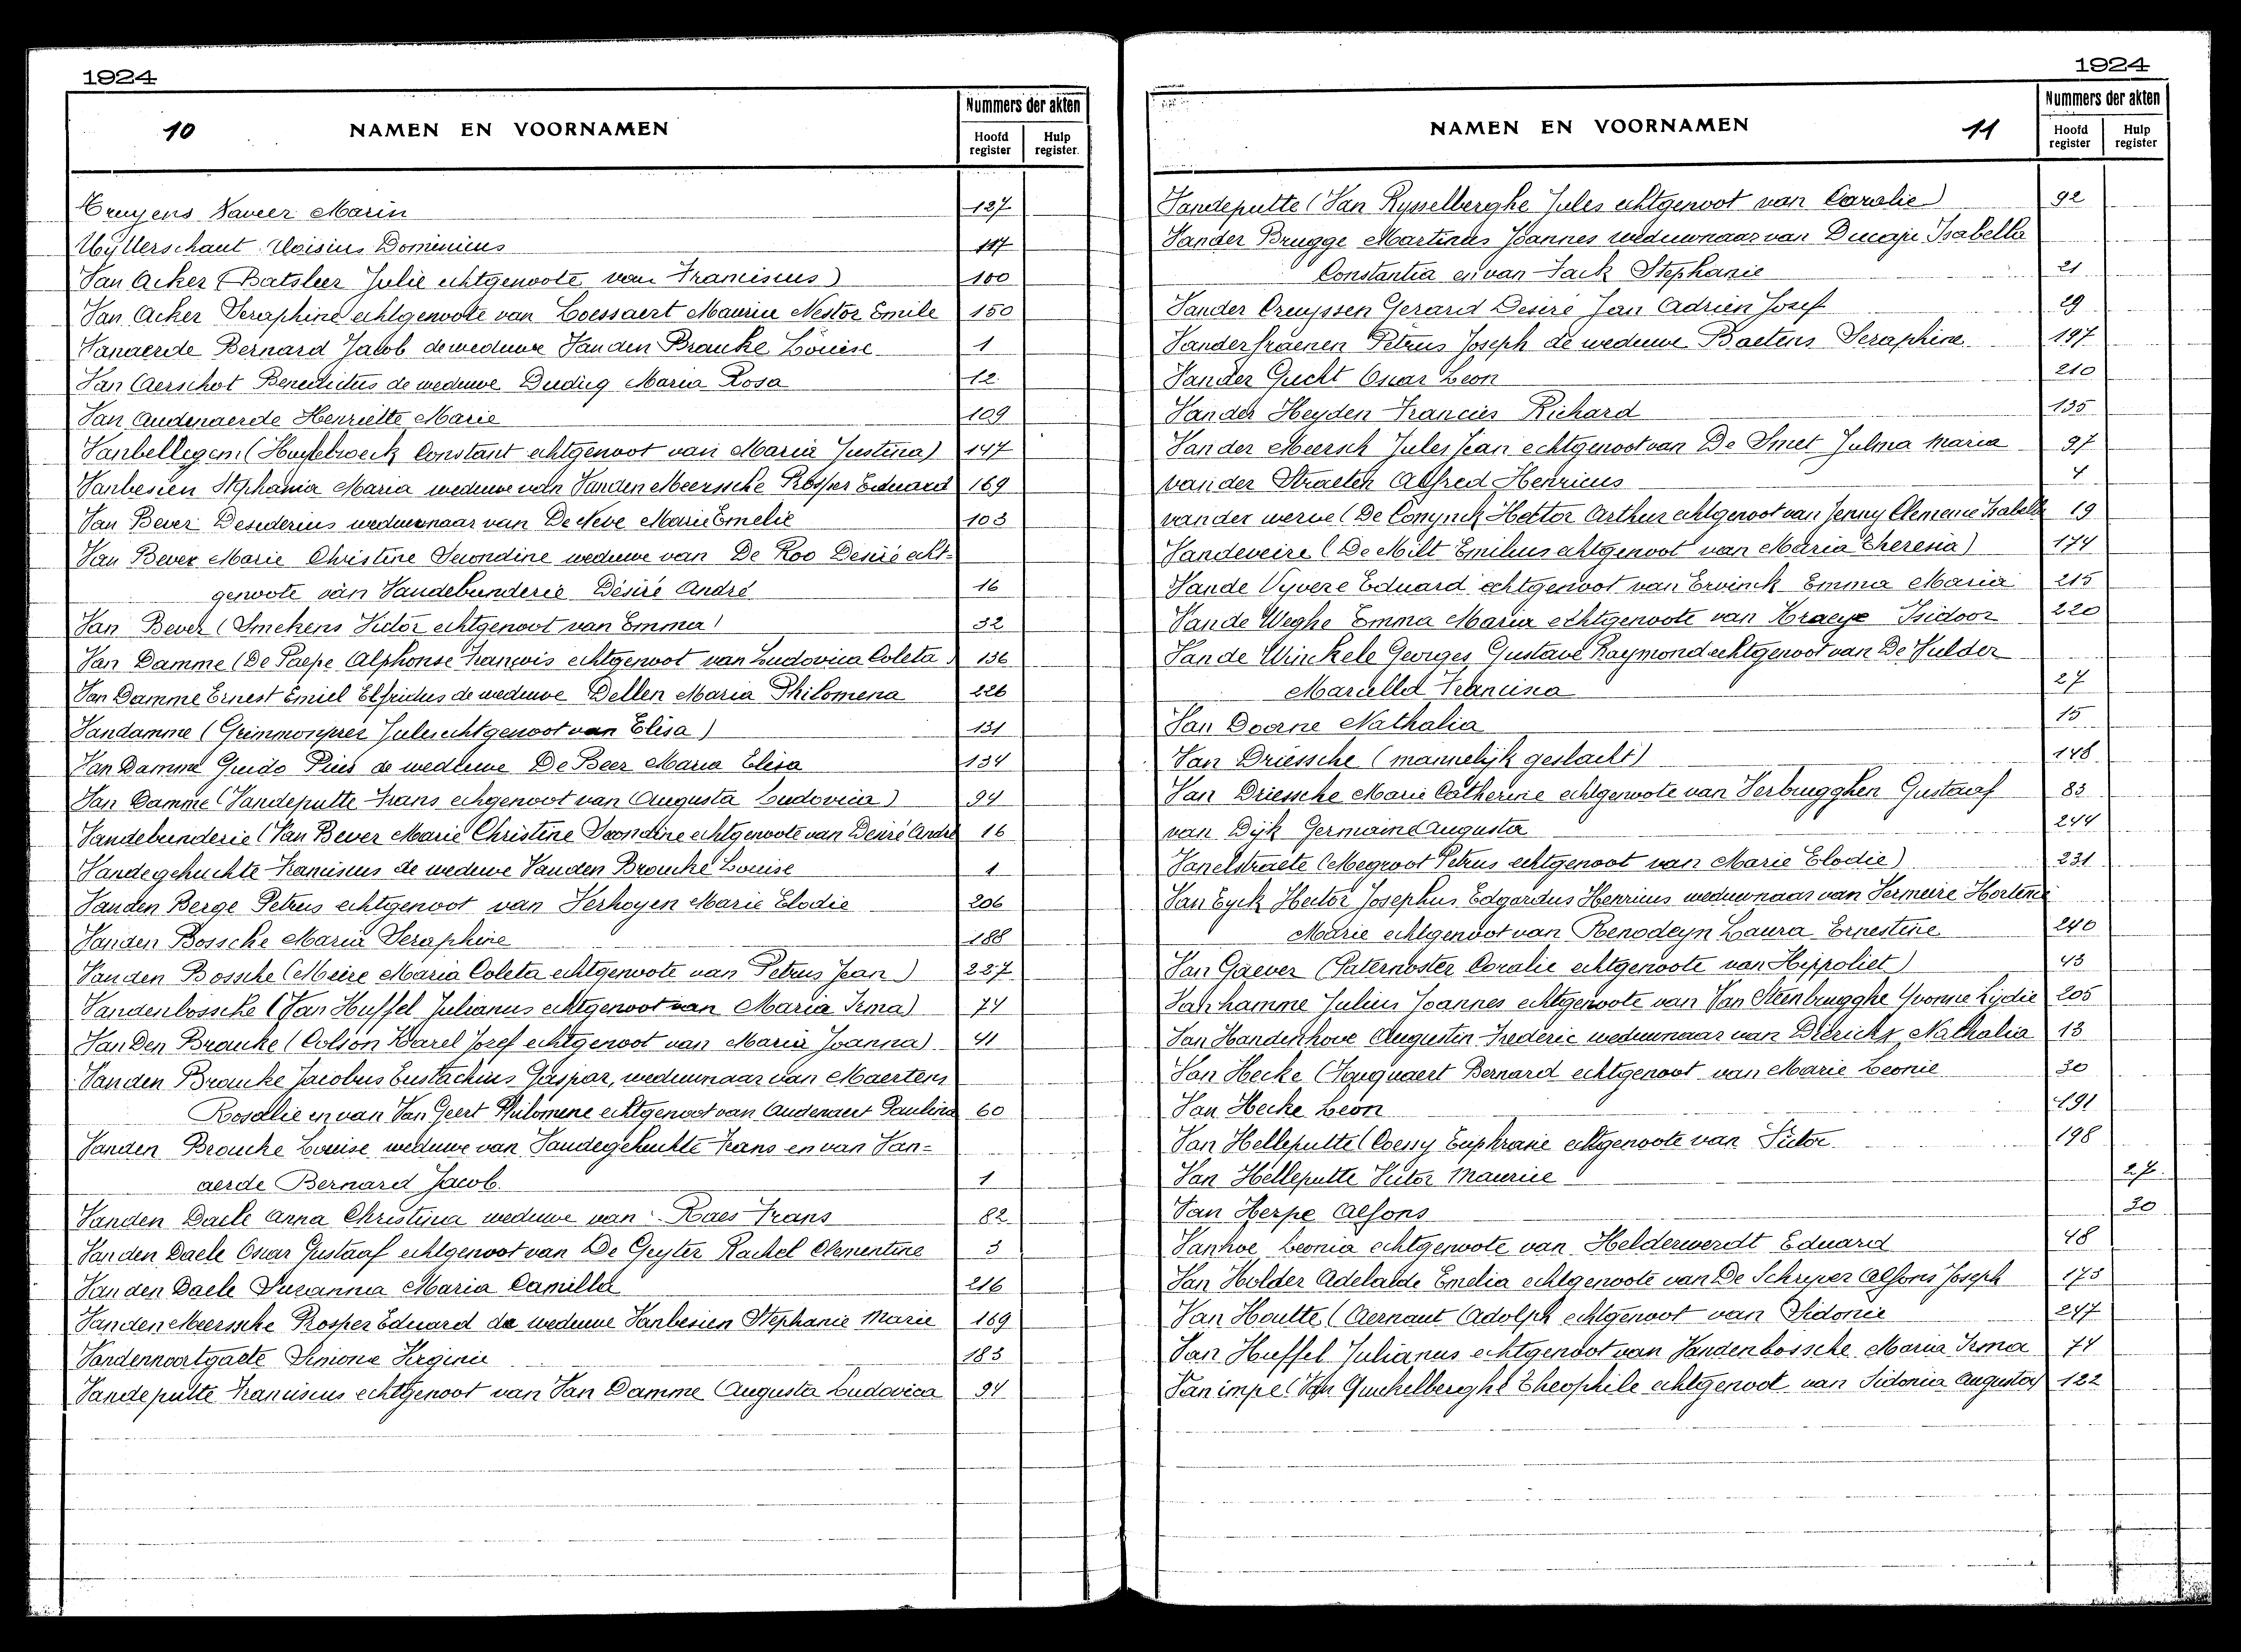 1924
10 NAMEN EN VOORNAMEN
Nummers der akten
Hoofd register
Hulp register.
Truyens Xaveer Marin 137
Uytterschaut Aloisius Dominicus 117
Van Acker (Batsleer Julie echtgenoote van Franciscus) 100
Van Acker Seraphine echtgenoote van Coessaert Maurice Nestor Emile 150
Vanaerde Bernard Jacob de weduwe Van den Broucke Louise 1
Van Aerschot Benedictus de weduwe Maria Rosa 12
Van Audenaerde Henriette Marie 109
Vanbellegem (Huylebroeck Constant echtgenoot van Maria Justina) 147
Vanbesien Stephania Maria weduwe van Vanden Meerssche Prosper Eduard 169
Van Bever Desiderius weduwnaar van De Neve Marie Emelie 103
Van Bever Marie Christine Secondine weduwe van De Roo Desiré echt-
genoote van Vandebunderie Désiré André 16
Van Bever (Smekens Victor echtgenoot van Emma) 32
Van Damme (De Paepe Alphonse François echtgenoot van Ludovica Coleta) 136
Van Damme Ernest Emiel Elfridus de weduwe Dellen Maria Philomena 226
Vandamme (Grimmonprez Jules echtgenoot van Elisa) 131
Van Damme Guido Pius de weduwe De Beer Maria Elisa 134
Van Damme (Vandeputte Frans echgenoot van Augusta Ludovica) 94
Vandebunderie (Van Bever Marie Christine Secondine echtgenoote van Desiré André 16
Vandegehuchte Franciscus de weduwe Vanden Broucke Louise 1
Vanden Berge Petrus echtgenoot van Verhoyen Marie Elodie 206
Vanden Bossche Maria Seraphine 188
Vanden Bossche (Meire Maria Coleta echtgenoote van Petrus Jean) 227
Vandenbossche (Van Huffel Julianus echtgenoot van Maria Irma) 74
Van Den Broucke (Colson Karel Jozef echtgenoot van Maria Joanna) 41
Vanden Broucke Jacobus Eustachius Gaspar, weduwnaar van Maertens
Rosalie en van Van Geert Philomene echtgenoot van Audenaert Paulina 60
Vanden Broucke Louise weduwe van Vandegehuchte Frans en van Van-
aerde Bernard Jacob. 1
Vanden Daele Anna Christina weduwe van Raes Frans 82
Vanden Daele Oscar Gustaaf echtgenoot van De Geyter Rachel Clementine 3
Van den Daele Suzanna Maria Camilla 216
Vanden Meerssche Prosper Eduard de weduwe Vanbesien Stephanie Marie 169
Vandennoortgaete Simone Virginie 183
Vandeputte Franciscus echtgenoot van Van Damme Augusta Ludovica 94
1924
NAMEN EN VOORNAMEN 11
Nummers der akten
Hoofd register
Hulp register
Vandeputte (Van Rysselberghe Jules echtgenoot van Coralie) 92
Vander Brugge Martinus Joannes weduwnaar van Ducaju Isabella
Constantia en van Jack Stephanie 21
Vander Cruyssen Gerard Desiré Jan Adrien Josef 29
Vanderfraenen Petrus Joseph de weduwe Baetens Seraphine 197
Vander Gucht Oscar Leon 210
Vander Heyden Francies Richard 135
Vander Meersch Jules Jean echtgenoot van De Smet Julma Maria 97
van der Straeten Alfred Henricus 4
vander werve (De Conynck Hector Arthur echtgenoot van Jenny Clemence Isabelle 19
Vandeveire (De Milt Emilius echtgenoot van Maria Theresia) 174
Vande Vyvere Eduard echtgenoot van Ervinck Emma Maria 215
Vande Weghe Emma Maria echtgenoote van Kraeye Isidoor 220
Van de Winckele Georges Gustave Raymond echtgenoot van De Mulder
Marcella Francisca 27
Van Doorne Nathalia 15
Van Driessche (mannelijk geslacht) 148
Van Driessche Marie Catherine echtgenoote van Verbrugghen Gustaaf 83
van Dijk Germaine Augusta 244
Vanelstraete (Megroot Petrus echtgenoot van Marie Elodie) 231
Van Eyck Hector Josephus Edgardus Henricus weduwnaar van Vermeire Hortence
Marie echtgenoot van Renodeyn Laura Ernestine 240
Van Gaever (Paternoster Coralie echtgenoote van Hippoliet) 43
Vanhamme Julius Joannes echtgenoote van Van Steenbrugghe Yvonne Lydie 205
Van Handenhove Augustin Frederic weduwnaar van Diericks Nathalia 13
Van Hecke (Fouquaert Bernard echtgenoot van Marie Leonie 30
Van Hecke Leon 191
Van Helleputte (Coessy Euphrasie echtgenoote van Victor 198
Van Helleputte Victor Maurice 27
Van Herpe Alfons 30
Vanhoe Leonia echtgenoote van Helderwerdt Eduard 48
Van Holder Adelaide Emelia echtgenoote van De Schryver Alfons Joseph 173
Van Houtte (Aernaut Adolph echtgenoot van Sidonie 247
Van Huffel Julianus echtgenoot van Vandenbossche Maria Irma 74
Vanimpe (Van Quickelberghe Theophile echtgenoot van Sidonia Augusta) 122